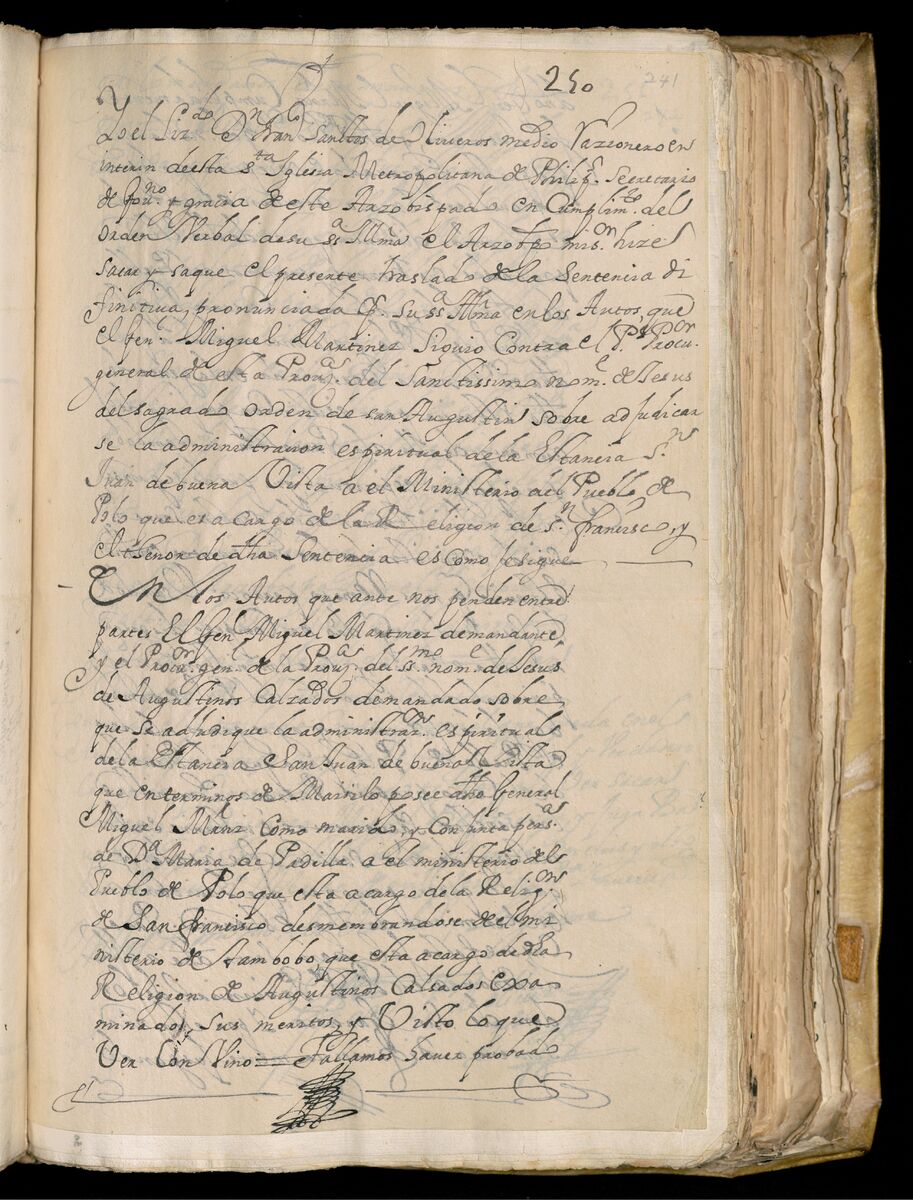 250 241
Yo el Liz.do Dn Fran.co Sanctos de Oliveros medio Razionero en
interin de esta s.ta Iglesia Metropolitana de Philip.s Secretario
de gov.no y gracia de este Arzobispado en Cumplim.to del
orden Verbal de su ss.a Illma el Arzobpo mi s.or hize
sacar y saque el presente traslado de la Sentencia di
finitiva pronunciada p.r su ss.a Illma en los Autos, que
el gen.l Miguel Martinez Siguio Contra el P.e Procu.or
general de esta Prou.a del Sanctissimo nom.e de Jesus
del sagrado orden de san Augustin sobre adjudicar
se la administracion espiritual de la Estancia s.n
Juan de buena Vista a el Ministerio del Pueblo de
Polo que es a cargo de la Religion de s.n francisco, y
el thenor de dha Sentencia es como se sigue
En los Autos que ante nos penden entre
partes El gen.l Miguel Martinez demandante
y el Procu.or gen.l de la Prou.a del ss.mo nom.e de Jesus
de Augustinos Calzados demandado sobre
que se adjudique la administraz.on espiritual
de la Estancia San Juan de buena Vista
que en terminos de Marilo posee dho General
Miguel Mrnz como marido, y Conjunta pers.a
de D.a Maria de Padilla a el ministerio del
Pueblo de Polo que esta a cargo de la Relig.on
de San francisco desmembrandose del mi
nisterio de Tambobo, que esta a cargo de dha
Religion de Augustinos Calsados exa
minados sus meritos, y Visto lo que
Ver Con Vino = Fallamos haver probado